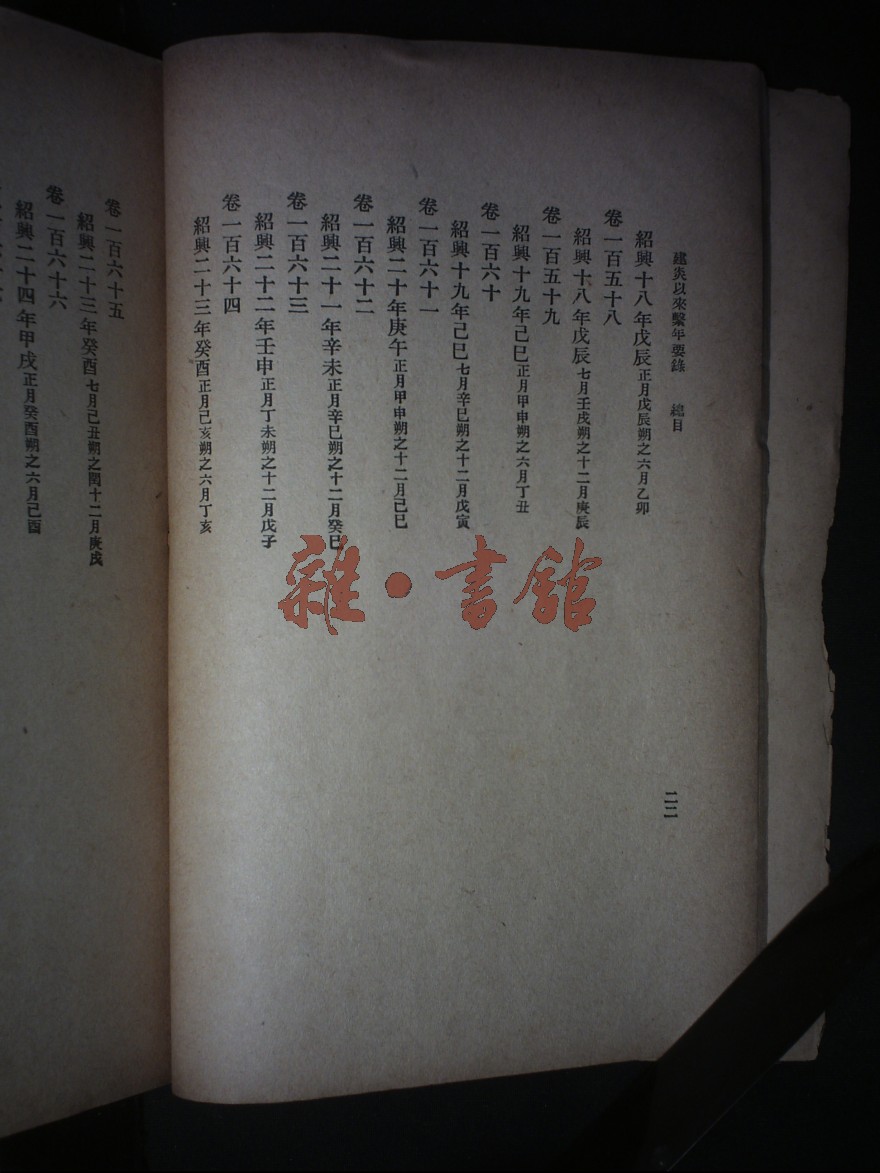 建炎以來繫年要錄 總目
二二
紹興十八年戊辰正月戊辰朔之六月乙卯
卷一百五十八
紹興十八年戊辰七月壬戌朔之十二月庚辰
卷一百五十九
紹興十九年己巳正月甲申朔之六月丁丑
卷一百六十
紹興十九年己巳七月辛巳朔之十二月戊寅
卷一百六十一
紹興二十年庚午正月甲申朔之十二月己巳
卷一百六十二
紹興二十一年辛未正月辛巳朔之十二月癸巳
卷一百六十三
紹興二十二年壬申正月丁未朔之十二月戊子
卷一百六十四
紹興二十三年癸酉正月己亥朔之六月丁亥
卷一百六十五
紹興二十三年癸酉七月己丑朔之閏十二月庚戌
卷一百六十六
紹興二十四年甲戌正月癸酉朔之六月己酉
雜·書館